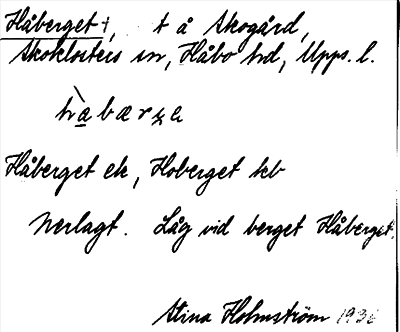 Håberget †, t å Skogård,
Skoklosters sn, Håbo hd, Upps. l.
Håberget ek, Hoberget kb
Nerlagt. Låg vid berget Håberget.
Stina Holmström